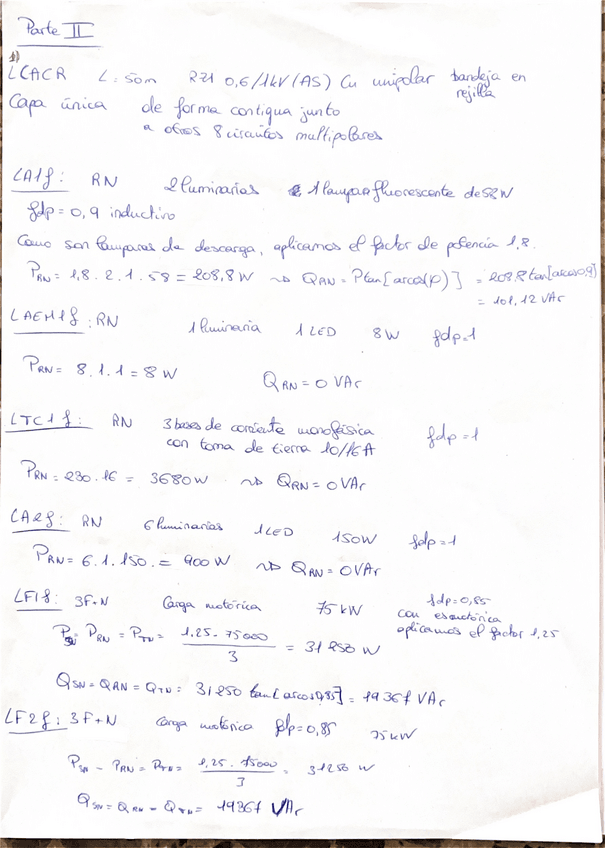 Parte II
1)
LCACR L=50m RZ1 0,6/1kV (AS) Cu unipolar bandeja en rejilla
Capa única de forma contigua junto
a otros 8 circuitos multipolares
LA1f: RN 2 luminarias 1 lampara fluorescente de 58W
fdp = 0,9 inductivo
Como son lamparas de descarga, aplicamos el factor de potencia 1,8.
PRN = 1,8 . 2 . 1 . 58 = 208,8 W ~> QRN = P tan[arcos(φ)] = 208,8 tan[arcos0,9]
= 101,12 VAr
LAEM1f: RN 1 luminaria 1 LED 8W fdp=1
PRN = 8 . 1 . 1 = 8 W QRN = 0 VAr
LTC1f: RN 3 bases de corriente monofásica
con toma de tierra 10/16A fdp = 1
PRN = 230 . 16 = 3680 W ~> QRN = 0 VAr
LA2f: RN 6 luminarias 1 LED 150W fdp = 1
PRN = 6 . 1 . 150 . = 900 W ~> QRN = 0 VAr
LF1f: 3F+N Carga motórica 75 kW fdp=0,85
con es motórica
aplicamos el factor 1,25
PSN = PRN = PTN = 1.25 . 75000 / 3 = 31250 W
QSN = QRN = QTN = 31250 tan[arcos0,85] = 19367 VAr
LF2f: 3F+N Carga motórica fdp=0,85 75kW
PSN - PRN = PTN = 1,25 . 75000 / 3 = 31250 W
QSN = QRN - QTN = 19367 VAr